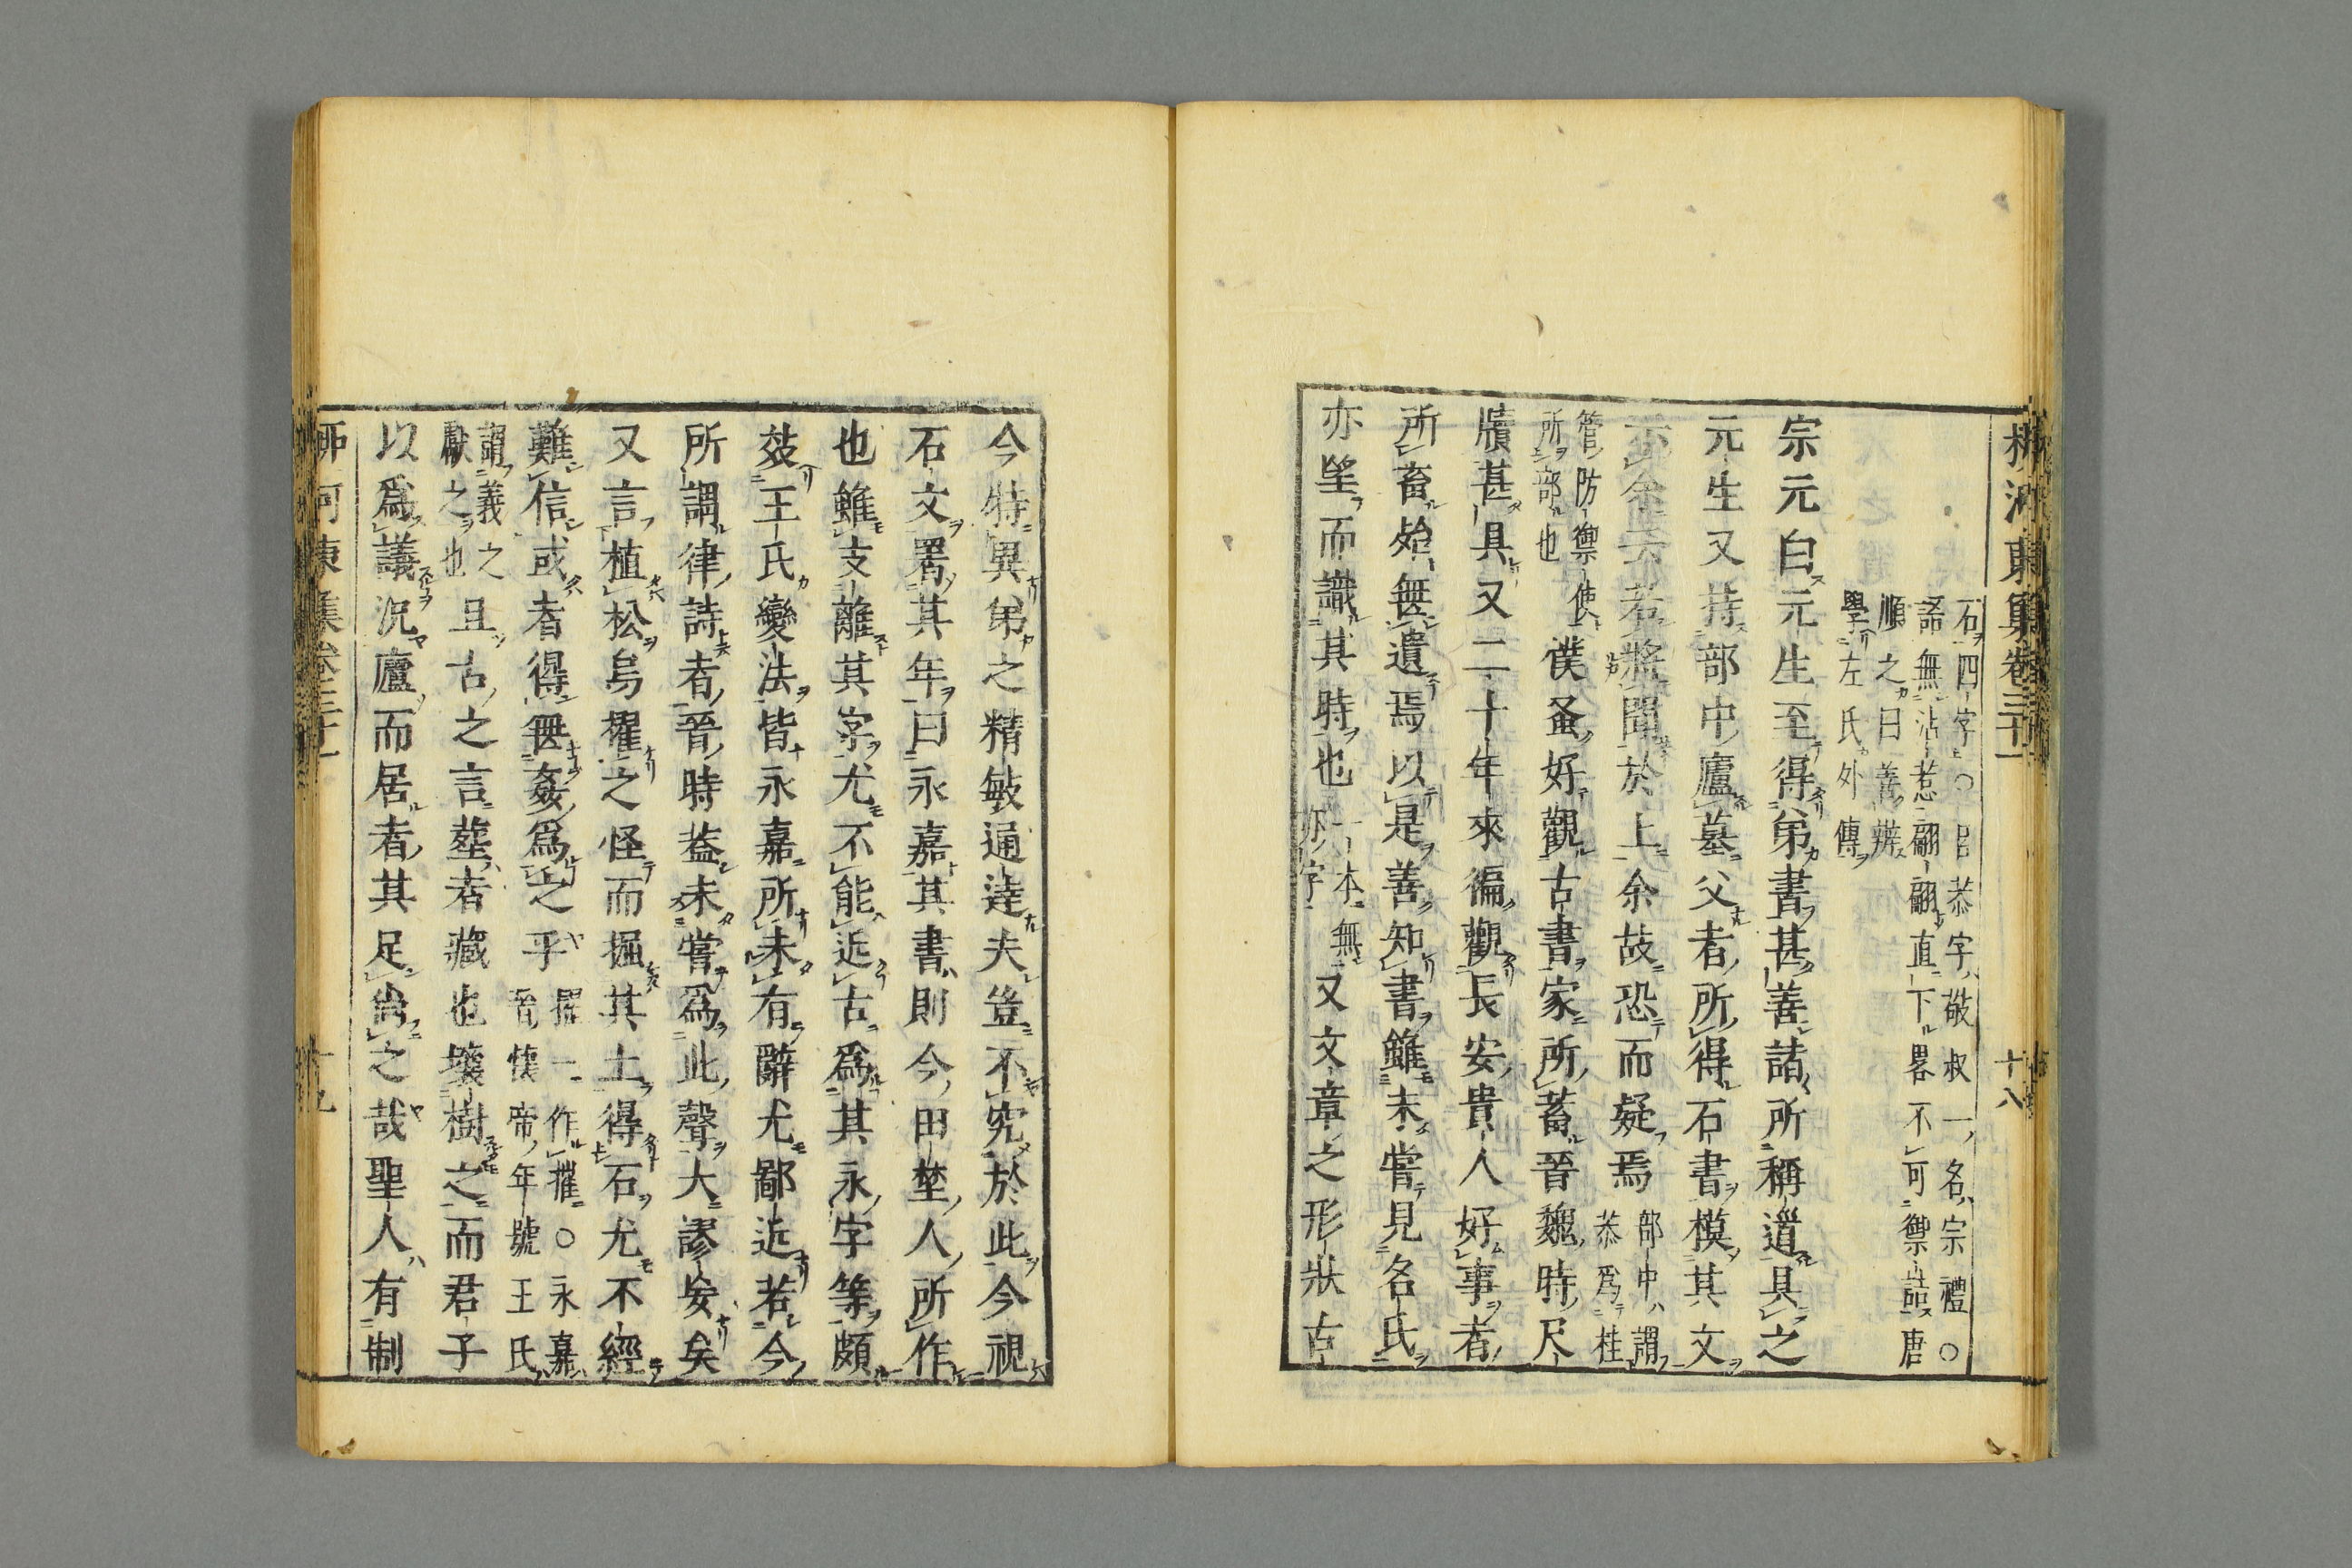 柳河東集卷三十一 十八
石四字○呂恭字敬叔一名宗禮○
語無沾惹翩翩直下畧不可禦誌唐
順之曰善辨
學左氏外傳
宗元白元生至得弟書甚善諸所稱道具之
元生又持部中廬墓父者所得石書模其文
示余云若將聞於上余故恐而疑焉部中謂
恭爲桂
管防禦使
所部也僕蚤好觀古書家所蓄晉魏時尺
牘甚具又二十年來徧觀長安貴人好事者
所畜殆無遺焉以是善知書雖未嘗見名氏
亦望而識其時也一本無
亦字又文章之形狀古
今特異弟之精敏通達夫豈不究於此今視
石文署其年曰永嘉其書則今田埜人所作
也雖支離其字尤不能近古爲其永字等頗
效王氏變法皆永嘉所未有辭尤鄙近若今
所謂律詩者晉時葢未嘗爲此聲大謬妄矣
又言植松烏擢之怪而掘其土得石尤不經
難信或者得無姦爲之乎擢一作摧○永嘉
晉懷帝年號王氏
謂義之
獻之也且古之言葬者藏也壞樹之而君子
以爲議況廬而居者其足尚之哉聖人有制
柳河東集卷三十一 十九